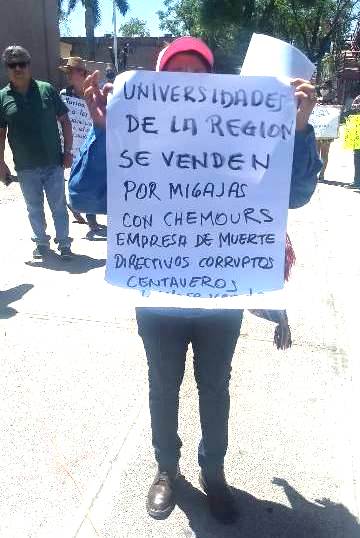 UNIVERSIDADES
DE LA REGION
SE VENDEN
POR MIGAJAS
CON CHEMOURS
EMPRESA DE MUERTE
DIRECTIVOS CORRUPTOS
CENTAVEROS